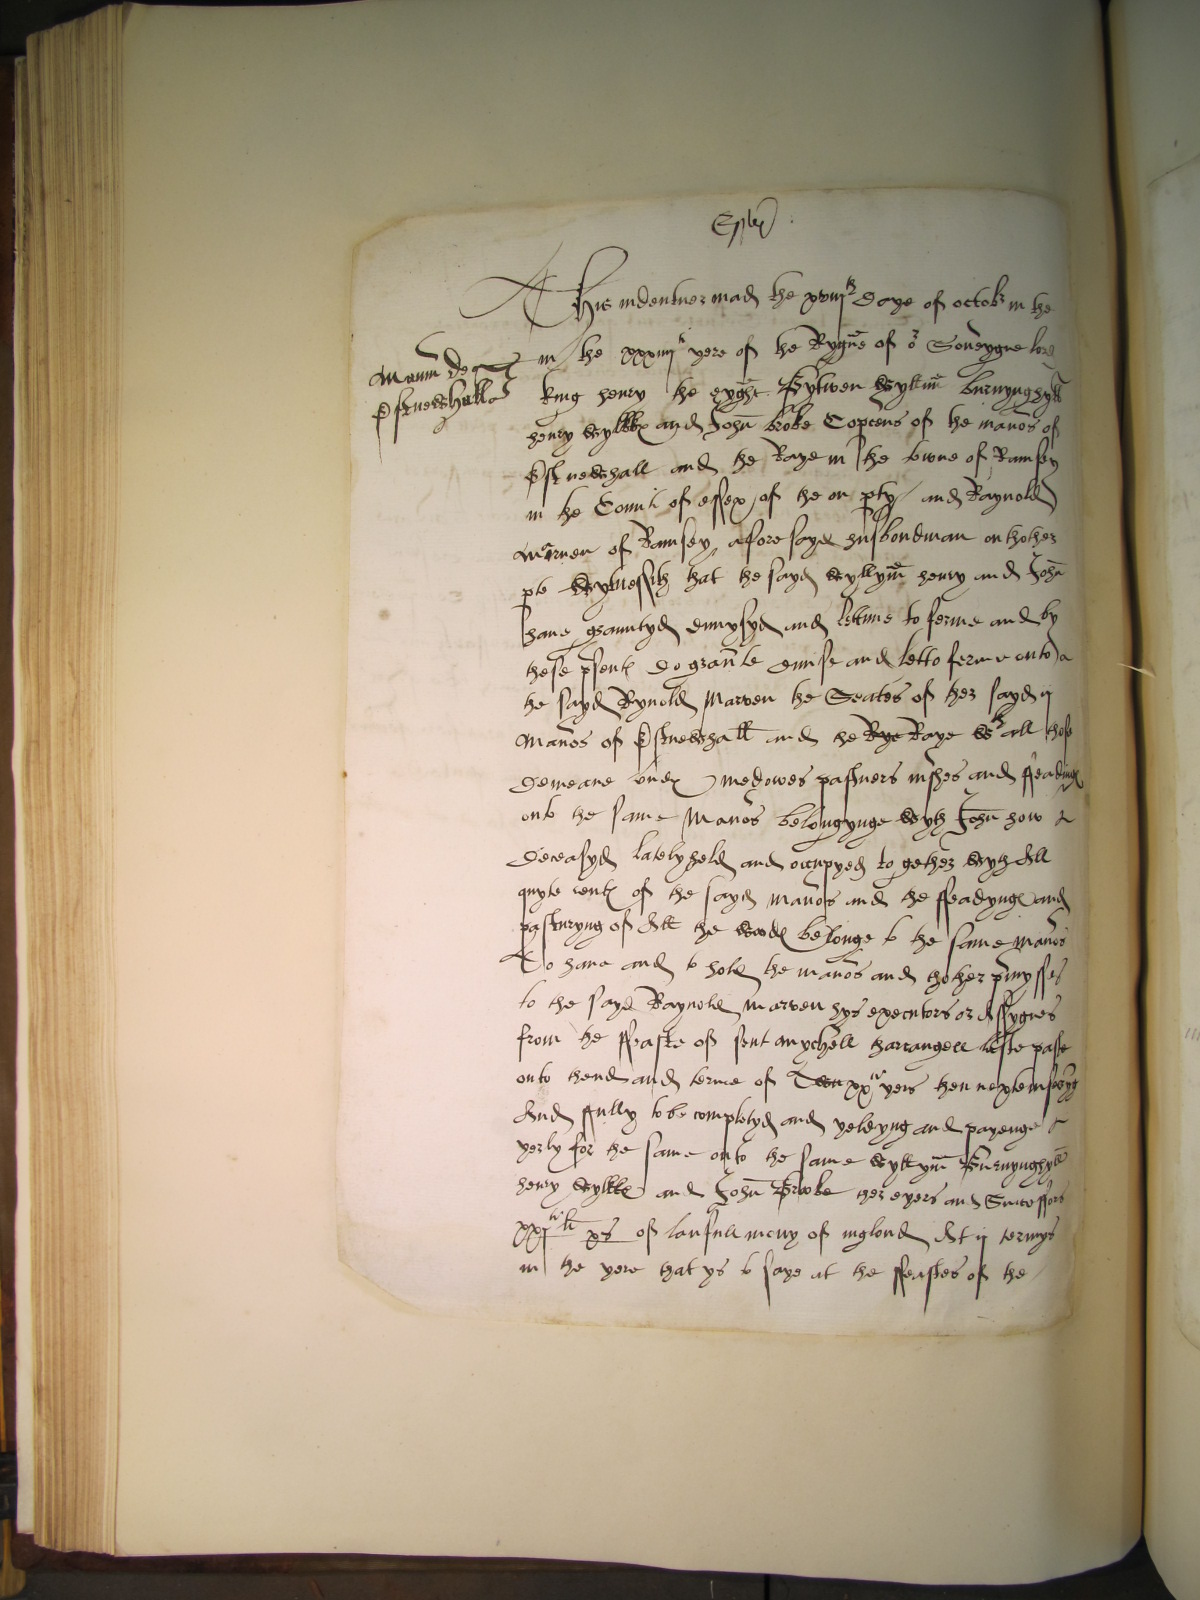 This indentuer mad the xviijth daye of octobr in the
in the xxxiiijti yere of the Rygne of or Soveygne lord
Manm de
Estnewhall
king henry the eyght Bytwen Wyllm burnynghyll
henry Wyllkx and John broke Copcens of the manos of
Estnewhall and the Raye in the towne of Ramsey
in the Counti of essex of the on pty and Raynold
Marven of Ramsey aforesayd husbondman on thother
pte Wytnessith that the sayd Wyllym henry and John
have grauntyd dimysyd and lettine to ferme and by
these psent do graunte dimise and letto ferme onto
the sayd Rynold Marven the Seates of ther sayd ij
Manos of Estnewhall and the Rye Raye wth all those
Demeane medowes pasturs and ffeading
onto the same Manos belongynge Wych John how
deceasyd lately held and occupyed to gether Wyth All
quyte rent of the sayd manos and the ffeadyng and
pasturyng of All the wood belonge to the same manos
To have and to hold the manos and thother pmysses
to the sayd Raynold Marven hys executors or Assygnes
from the ffeaste off sent mychell tharcangell laste paste
onto thend and terme of xx yers then next
And ffully to be completyd and yeldyng and payenge
yerly for the same onto the same Wyllym Burnynghyll
henry Wyllkx and John Brooke ther eyers and Sucessors
xs of laufull mony of inglond At ij termys
in the yere that ys to saye at the ffeastes of the